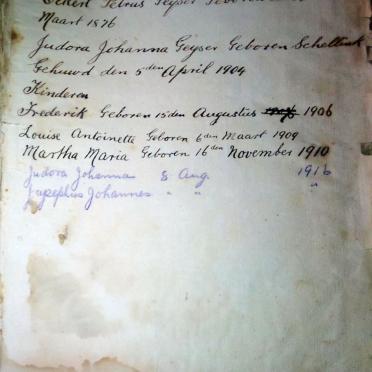 Petrus Geyser Geboren
Maart 1876
Judora Johanna Geyser Geboren
Gehuwd den 5den April 1904
Kinderen
Frederik Geboren 15den Augustus 1906
Louise Antoinette Geboren 6den Maart 1909
Martha Maria Geboren 16den November 1910
Judora Johanna 8 Aug. 1916
Johannes " " "